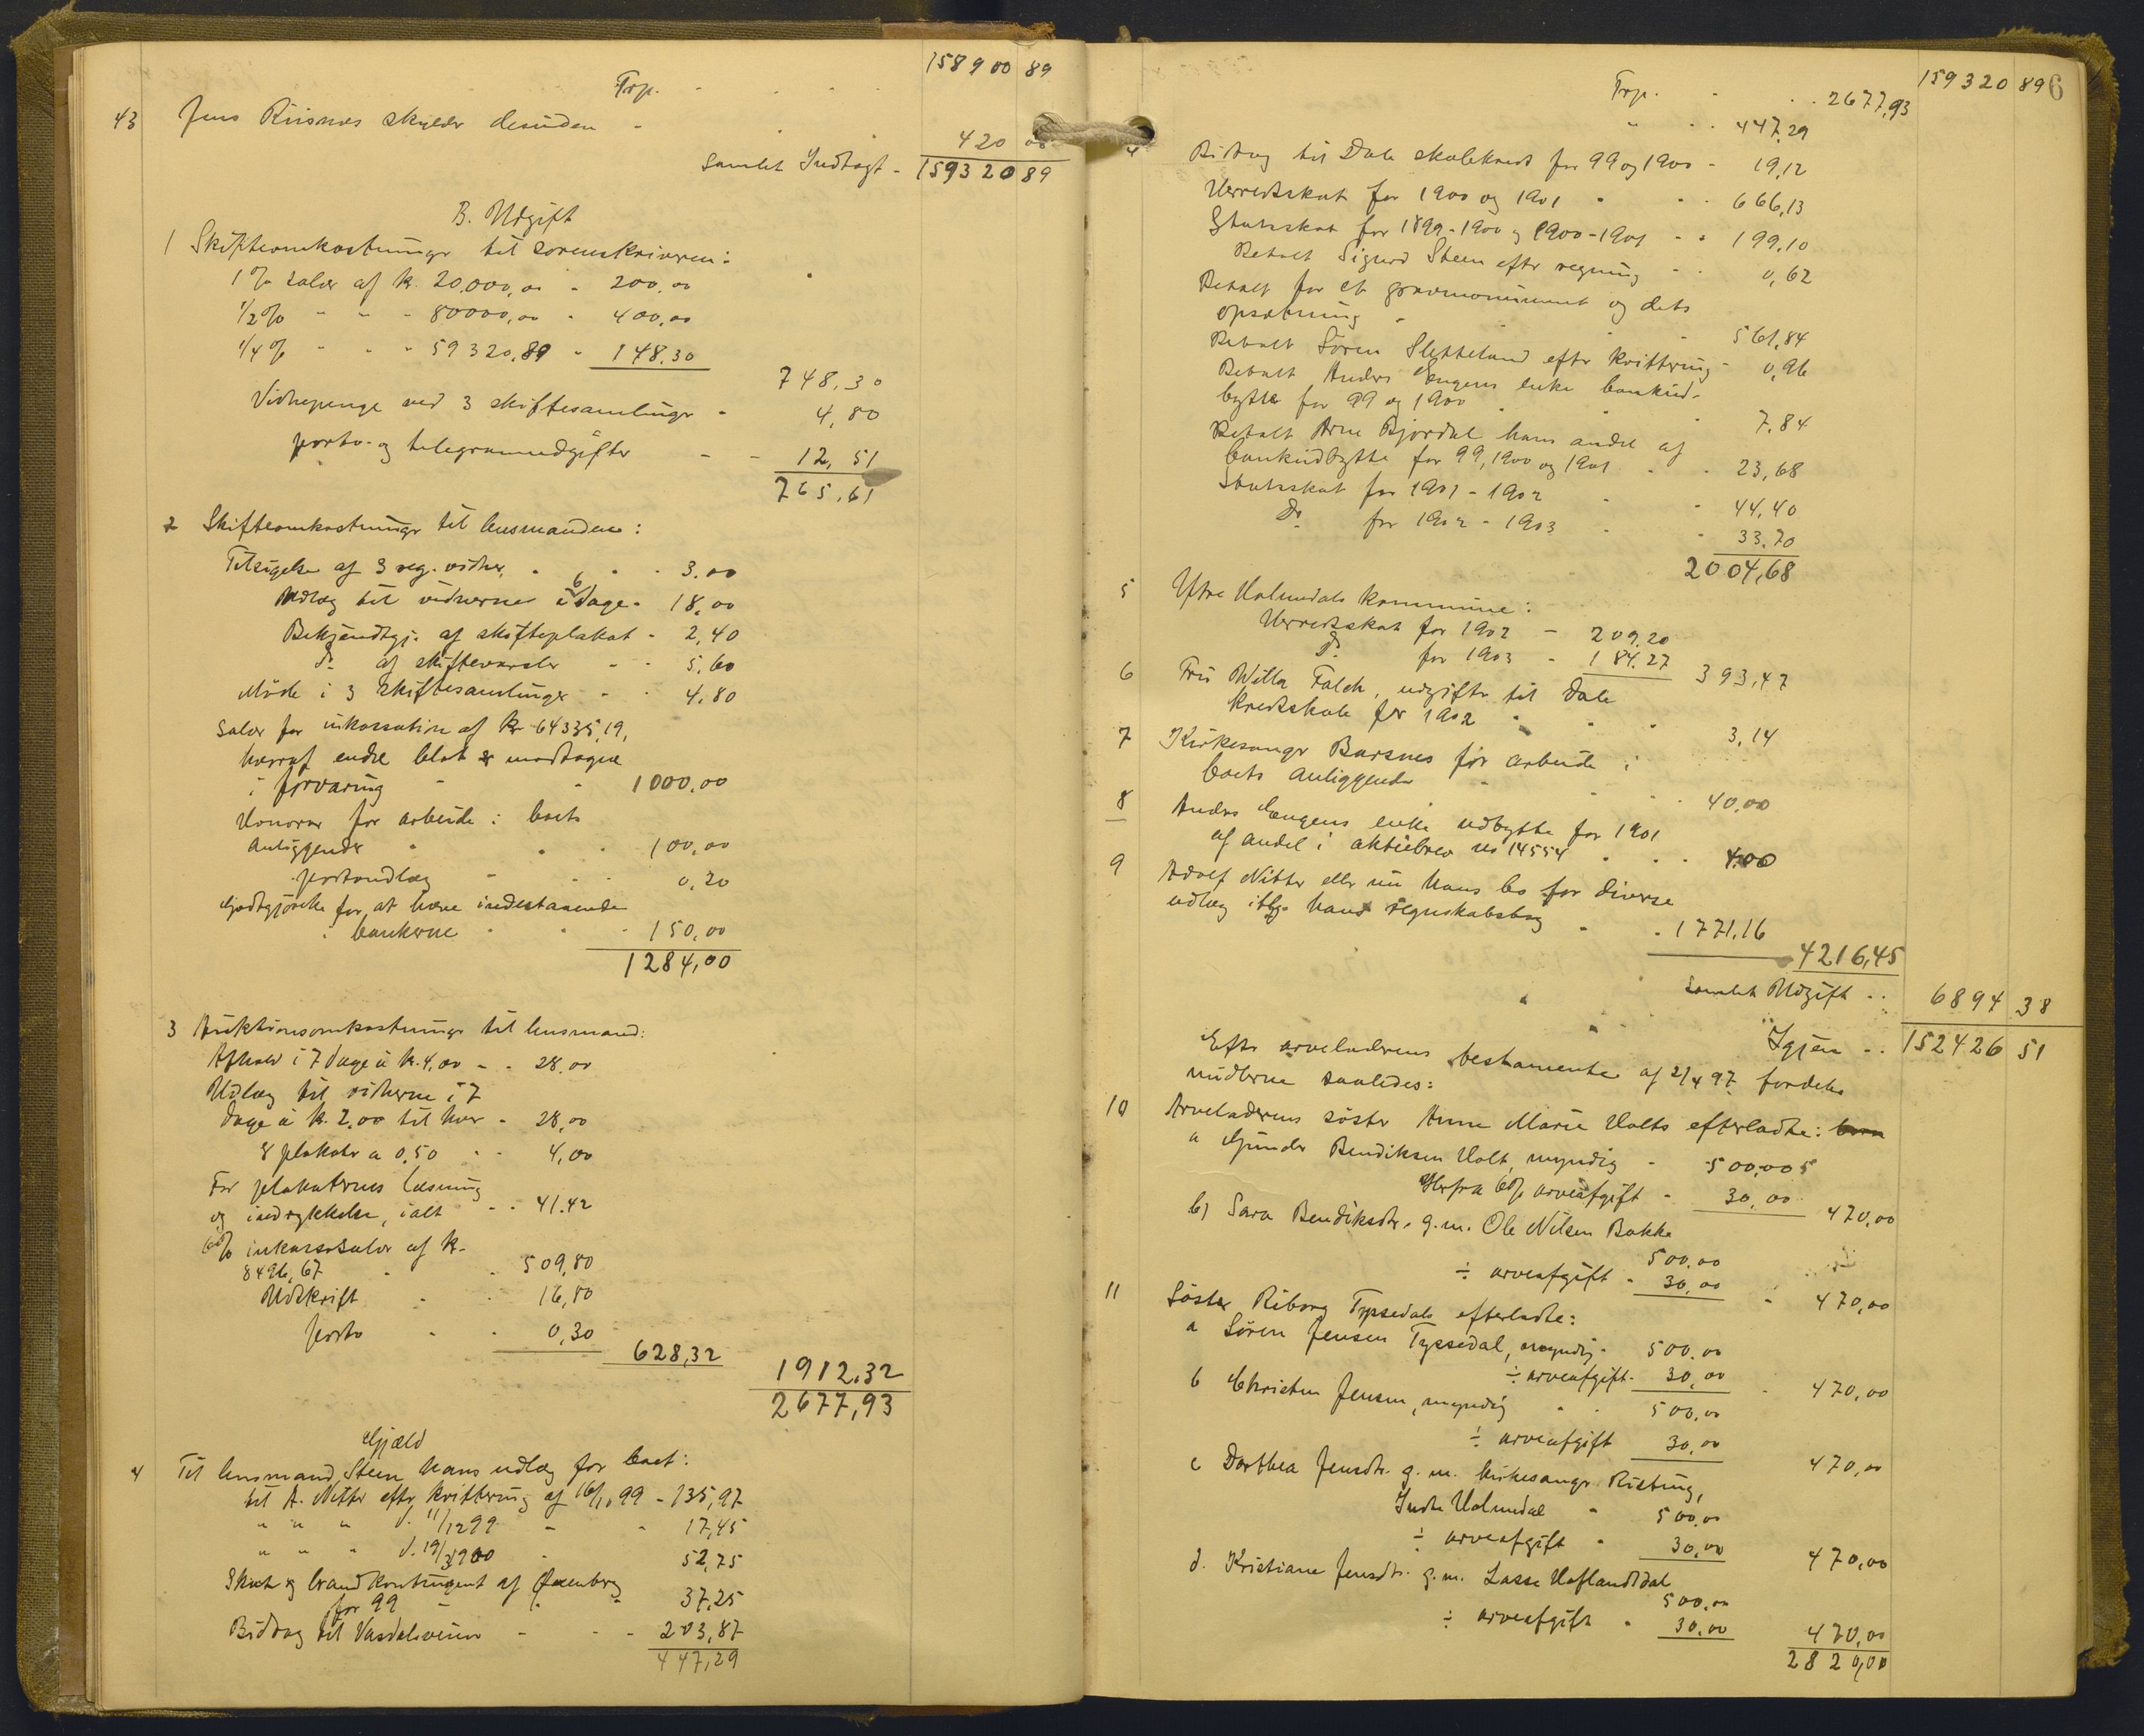 Trp. 158900 89
43 Jens Riisnes skylder desuden 420 00
Samlet Indtægt - 159320 89
B. Udgift
1 Skifteomkostninger til sorenskriveren:
1 % salær af kr. 20.000,00 - 200,00
1/2 % " " - 80000,00 - 400,00
1/4 % " " - 59320,89 - 148.30
748,30
Vidnepenge ved 3 skiftesamlinger - 4,80
porto- og telegramudgifter - - 12,51
765,61
2 Skifteomkostninger til lensmanden:
Tilsigelse af 3 reg. vidner 3.00
Udlæg til vidnerne i 6 dage - 18,00
Bekjendtgj. af skifteplakat - 2,40
do af skiftevarsler - - 5,60
Møde i 3 skiftesamlinger - 4,80
Salær for inkassation af kr 64335,19,
hvoraf endel blot er modtaget
i forvaring - 1000,00
Honorar for arbeide i boets
Anliggender - 100,00
portoudlæg 0,20
Godtgjörelse for at hæve indestaaende
i bankerne 150,00
1284,00
3 Auktionsomkostninger til lensmand:
Afhold i 7 dage à kr. 4,00 - - 28.00
Udlæg til vidnerne i 7
dage à kr. 2,00 til hver - 28,00
8 plakater a 0,50 - - 4,00
For plakaternes læsning
og indrykkelse, ialt - - 41.42
6 % inkassosalær af kr.
8496,67 - 509,80
Udskrift - - 16,80
porto - - 0,30
628,32 1912,32
2677,93
Gjæld
4 Til lensmand Steen hans udlæg for boet:
til A. Nitter efter kvittering af 16/10 99 - 135,97
" " " d. 11/12 99 - - 17,45
" " " d. 19/3 1900 52,75
Skat og brandkontingent af Øxenberg
for 99 - - 37.25
Bidrag til Vasdalsveien - - - 203,87
447,29
6
Trp. 2677,93 159320 89
" 447,29
4 Bidrag til Dale skolekreds for 99 og 1900 - 19,12
Herredsskat for 1900 og 1901 - 666,13
Statsskat for 1899-1900 og 1900-1901 - - 199,10
Betalt Sigurd Steen efter regning - - 0,62
Betalt for et gravmonument og dets
opsætning - 561,84
Betalt Sören Sletteland efter kvittering - 0,96
Betalt Anders Engens enke bankud-
bytte for 99 og 1900 7,84
Betalt Arne Bjordal hans andel af
bankudbytte for 99, 1900 og 1901 - - 23,68
Statsskat for 1901 - 1902 - 44,40
do for 1902 - 1903 - 33.70
2004,68
5 Ytre Holmedals kommune:
Herredsskat for 1902 - 209,20
do for 1903 - 184.27 393,47
6 Fru Willa Falch, udgifter til Dale
kredsskole for 1902 3,14
7 Kirkesanger Barsnes for arbeide i
boets anliggender - 40,00
8 Anders Engens enke udbytte for 1901
af andel i aktiebrev no 14554 4,00
9 Adolf Nitter eller nu hans bo for diverse
udlæg iflg. hans regnskabsbog - - 1771,16
4216,45
Samlet Udgift - - 6894 38
Igjen - - 152426 51
Efter arveladerens testamente af 2/4 97 fordeles
midlerne saaledes:
10 Arveladerens söster Anne Marie Holts efterladte: born
a Gunder Bendiksen Holt, myndig - 500,00
Herfra 6% arveafgift - 30,00 470,00
b) Sara Bendiksdtr. g.m. Ole Nilsen Bakke
500,00
÷ arveafgift - 30,00 - 470,00
11 Söster Riborg Tyssedals efterladte:
a Sören Jensen Tyssedal, myndig - 500.00
÷ arveafgift - 30,00 - 470,00
b Christen Jensen, myndig - - 500,00
÷ arveafgift 30,00 470,00
c Dorthea Jensdtr. g.m. kirkesanger Risting,
Indre Holmedal - 500,00
÷ arveafgift - 30,00 470,00
d. Kristiane Jensdtr. g.m. Lasse Haflanddal
500,00
÷ arveafgift - 30,00 470,00
2820,00